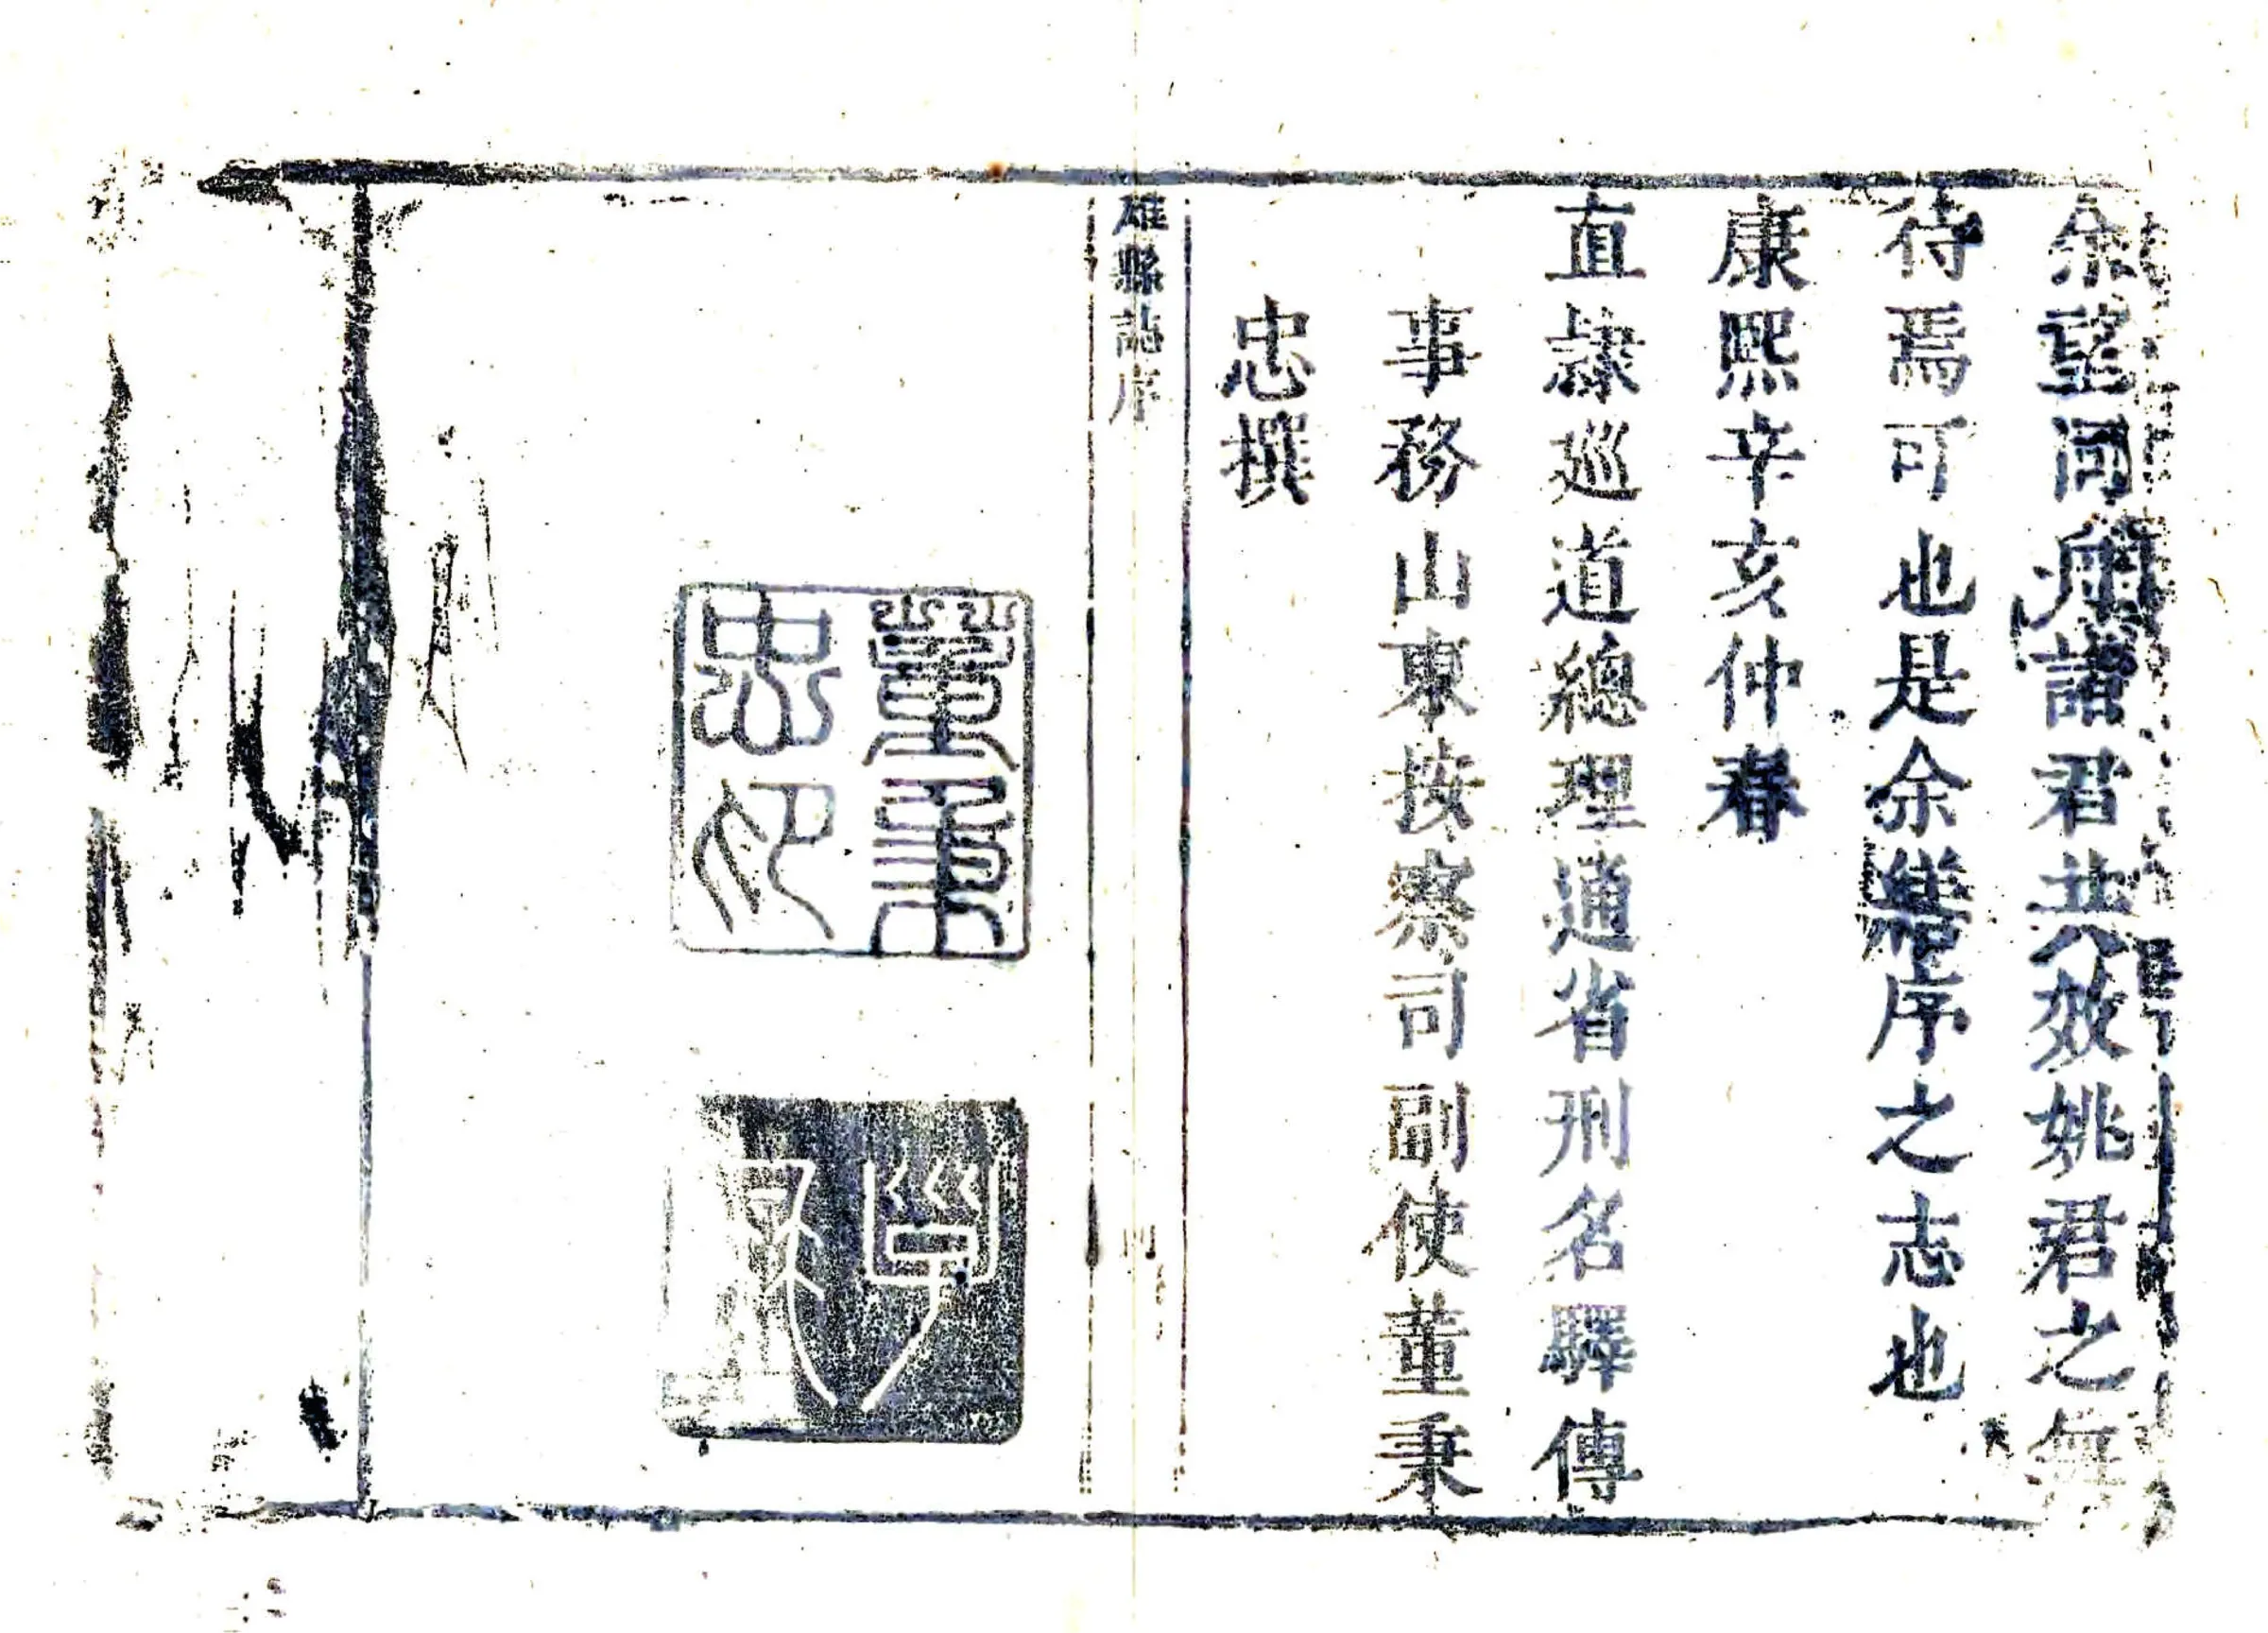 余望同廟諸君共效姚君之無
待焉可也是余繕序之志也
康熙辛亥仲春
直隸巡道總理通省刑名驛傳
事務山東按察司副使董秉
忠撰
雄縣誌序
四
董秉忠印